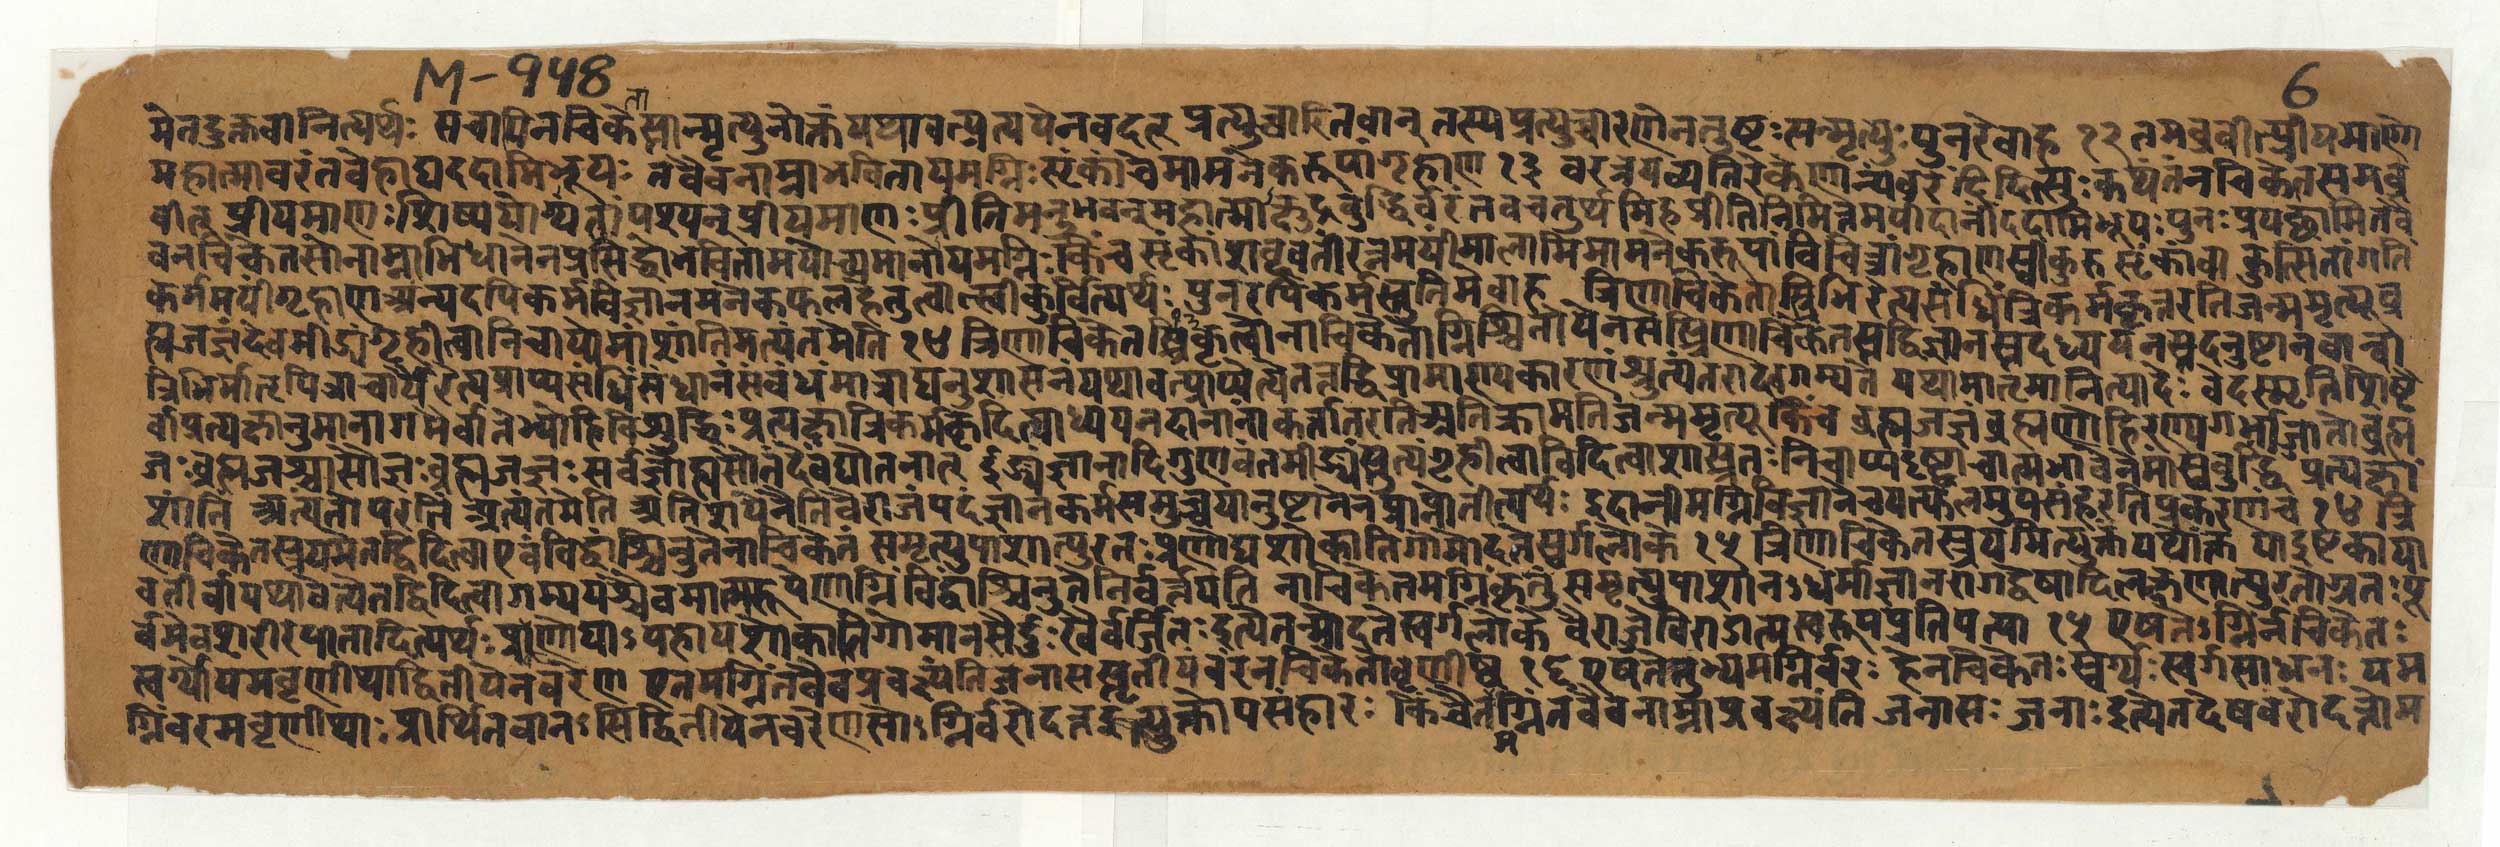 M-१५४
6
मेतदुक्तवानित्यर्थः सचापिनचिकेतास्तान्मृत्युनोक्तं यथावत्प्रत्ययेनवदत् प्रत्युच्चारितवान् तस्यप्रत्युच्चारणेनतुष्टःसन्मृत्युः पुनरेवाह १२ तमब्रवीत्प्रीयमाणो
महात्मावरंतवेहाद्यददामिभूयः तवैवनाम्नाभवितायमग्निः सृंकांचेमामनेकरूपांगृहाण १३ वरत्रयव्यतिरेकेणान्यंवरं दित्सुः कथंतंनचिकेतसमब्र
वीत् प्रीयमाणः शिष्ययोग्यतांपश्यन् प्रीयमाणः प्रीतिमनुभवन्महात्माक्षुद्रबुद्धिर्वरंतवचतुर्थमिहप्रीतिनिमित्तमपीदानींददामिभूयः पुनः प्रयच्छामितवै
वनचिकेतसोनाम्नाभिधानेनप्रसिद्धोभवितामयोच्यमानोयमग्निः किंच सृंकांशब्दवतींरत्नमयींमालामिमामनेकरूपांविचित्रांगृहाणस्वीकुरु सृंकांवा कुत्सितांगतिं
कर्ममयींगृहाणअन्यदपिकर्मविज्ञानमनेकफलहेतुत्वात्स्वीकुर्वित्यर्थः पुनरपिकर्मस्तुतिमेवाह त्रिणाचिकेतस्त्रिभिरेत्यसंधिंत्रिकर्मकृत्तरतिजन्ममृत्यूब्र
ह्मजज्ञंदेवमीड्यंगृहीत्वानिचाय्येमांशांतिमत्यंतमेति १४ त्रिणाचिकेतस्त्रिः कृत्वोनाचिकेतोग्निश्चितोयेनसत्रिणाचिकेतस्तद्विज्ञानस्तदध्ययनस्तदनुष्टानवान्वा
त्रिभिर्मातृपित्राचार्यैरेत्यप्राप्यसंधिंसंधानंसंबंधंमात्राद्यनुशासनंयथावत्प्राप्येत्येतत्तद्धिप्रामाण्यकारणंश्रुत्यंतरादवगम्यते यथामातृमानित्यादेः वेदस्मृतिशिष्टै
र्वाप्रत्यक्षानुमानागमैर्वातेभ्योहिविशुद्धिः प्रत्यक्षात्रिकर्मकृदित्याध्ययनदानानांकर्तातरतिअतिक्रामतिजन्ममृत्यू किंच ब्रह्मजज्ञंब्रह्मणोहिरण्यगर्भाज्जातोब्रह्म
जः ब्रह्मजश्चासौज्ञः ब्रह्मजज्ञः सर्वज्ञोह्यसौतंदेवंद्योतनात् ईड्यंज्ञानादिगुणवंतमीड्यंस्तुत्यंगृहीत्वाविदित्वाशास्त्रतः निचाय्यदृष्ट्वाचात्मभावेनेमांस्वबुद्धि प्रत्यक्षां
शांतिं अत्यंतोपरतिं अत्यंतमेति अतिशयेनैतिवैराजंपदंज्ञानकर्मसमुच्चयानुष्टानेनप्राप्नोतीत्यर्थः इदानीमग्निविज्ञानचयत्फलमुपसंहरतिप्रकरणंच १४ त्रि
णाचिकेतस्त्रयमेतद्विदित्वाएवंविद्वांश्चिनुतेनाचिकेतं समृत्युपाशान्पुरतःप्रणोद्यशोकातिगोमोदतेस्वर्गलोके १५ त्रिणाचिकेतस्त्रयमित्युक्तंयथोक्तं यादृष्टकाया
वतीर्वायथावेत्येतद्विदित्वागम्ययश्चैवमात्मरूपेणाग्निंविद्वांश्चिनुतेनिर्वर्त्तयति नाचिकेतमग्निंक्रतुं समृत्युपाशान्ऽधर्माज्ञानरागद्वेषादिलक्षणान्पुरतोग्रतःपू
र्वमेवशरीरपातादित्यर्थः प्रणोद्याऽपहायशोकातिगोमानसैर्दुःखैर्वर्जितः इत्येतन्मोदतेस्वर्गलोके वैराजेविराडात्मस्वरूपप्रतिपत्या १५ एषतेऽग्निर्नचिकेतः
स्वर्ग्योयमवृणीथाद्वितीयेनवरेण एतमग्निंतवैवप्रवक्ष्यंतिजनासस्तृतीयंवरंनचिकेतोवृणीष्व १६ एषतेतुभ्यमग्निर्वरः हेनचिकेतः स्वर्ग्यः स्वर्गसाधनः यम
ग्निंवरमवृणीथाः प्रार्थितवानऽसिद्वितीयेनवरेणसोऽग्निर्वरोदत्तइत्युक्तोपसंहारः किंचैतमग्निंतवैवनाम्नाप्रवक्ष्यंति जनासः जनाः इत्येतदेषवरोदत्तोम